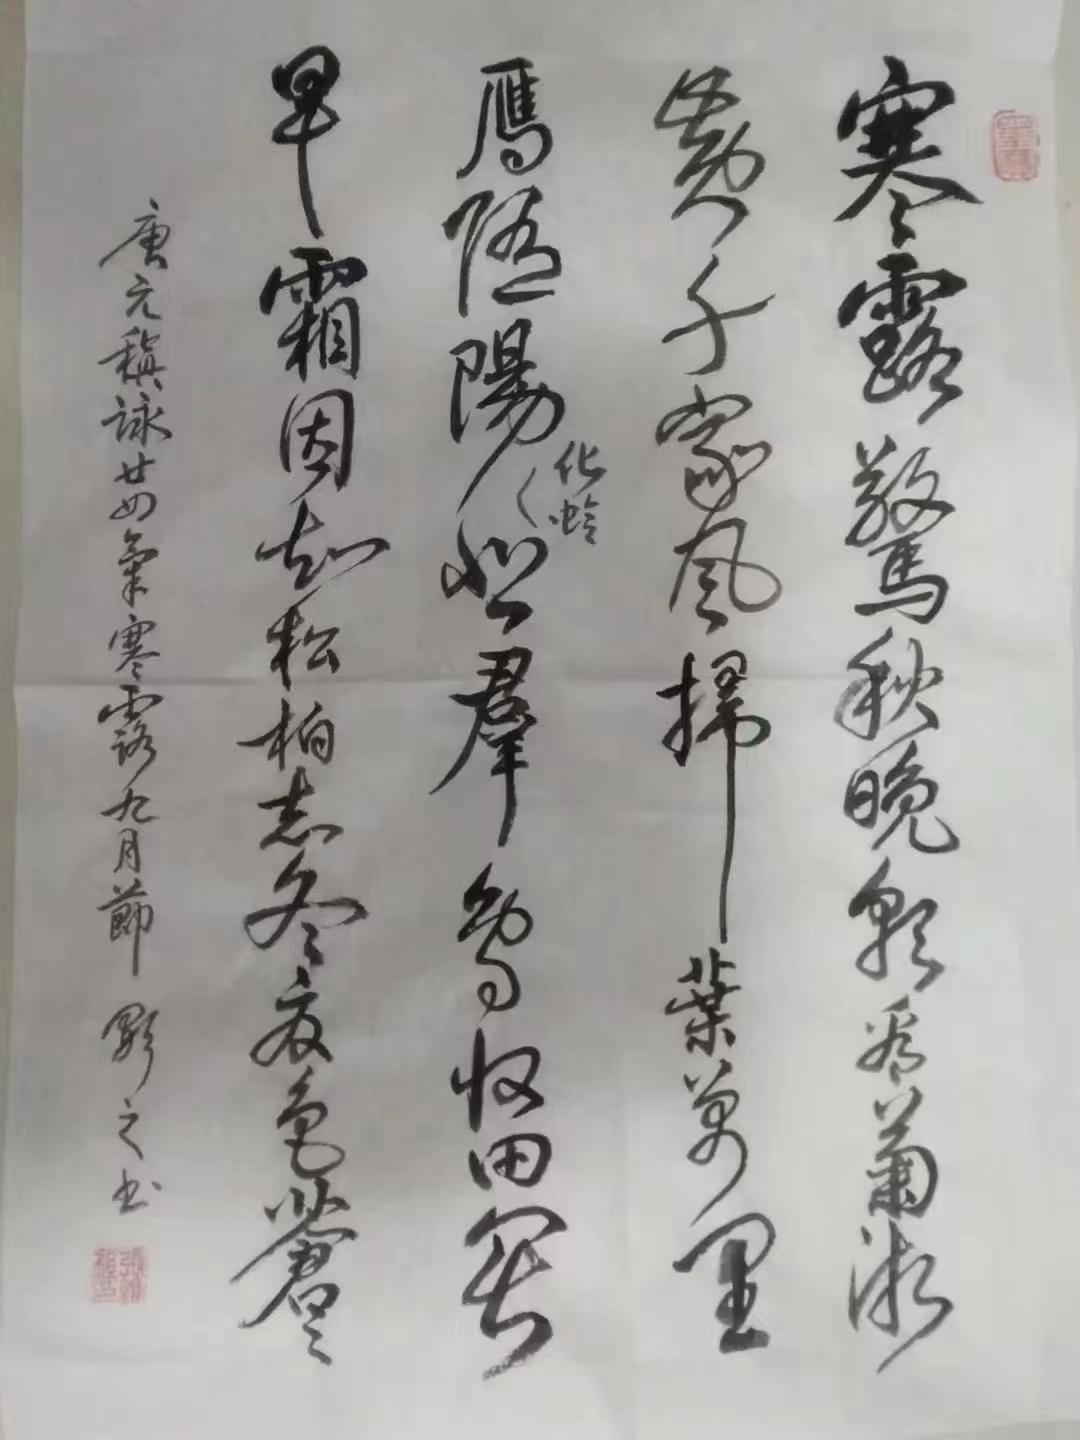 寒露驚秋晚朝看菊漸
黃千家風掃葉萬里
鴈隨陽悲羣鳥收田畏
化蛤
早霜因知松柏志冬夏色蒼々
唐元稹詠廿四氣寒露九月節 之书